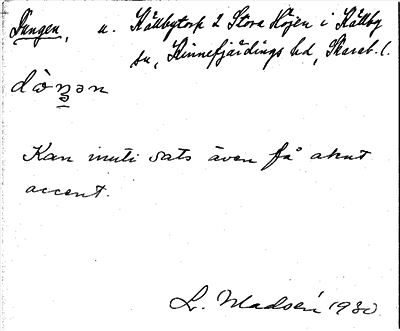 Dungen, u. Källbytorp 2 Stora Höjen i Källby
sn, Kinnefjärdings hd, Skarab. l.
dòŋən
Kan inuti sats även få akut
accent.
L. Madsén 1930